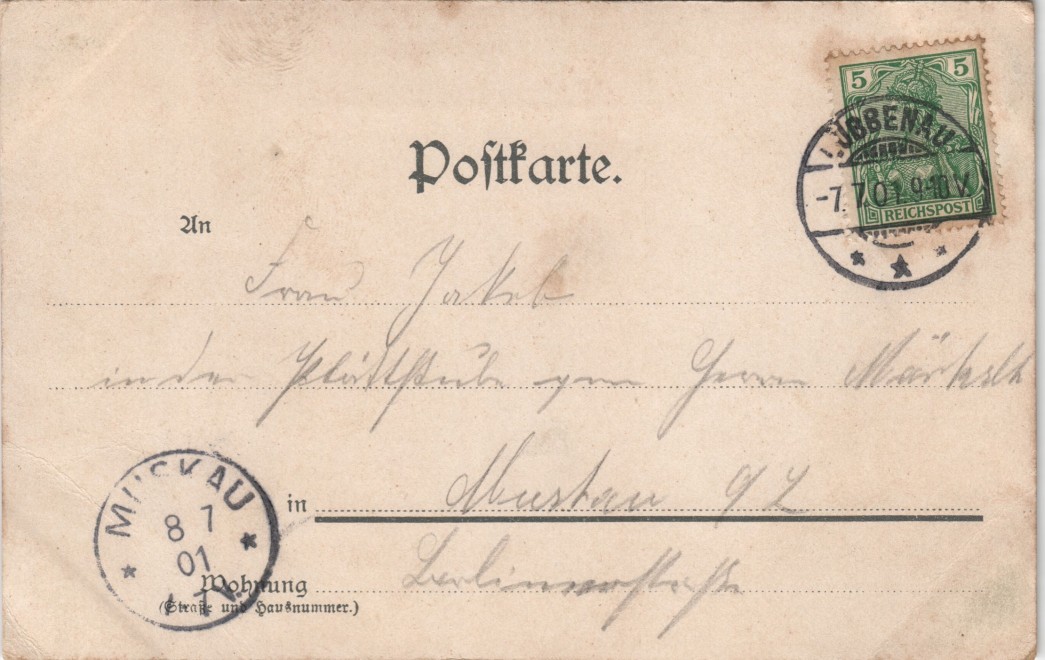 5 5
REICHSPOST
LÜBBENAU
-7.7.01.9-10V.
Postkarte.
An
Frau Jakob
in der Plättstube von Herrn
in Muskau O/L
Berlinerstraße
Wohnung
(Straße und Hausnummer.)
MUSKAU
8 7
01